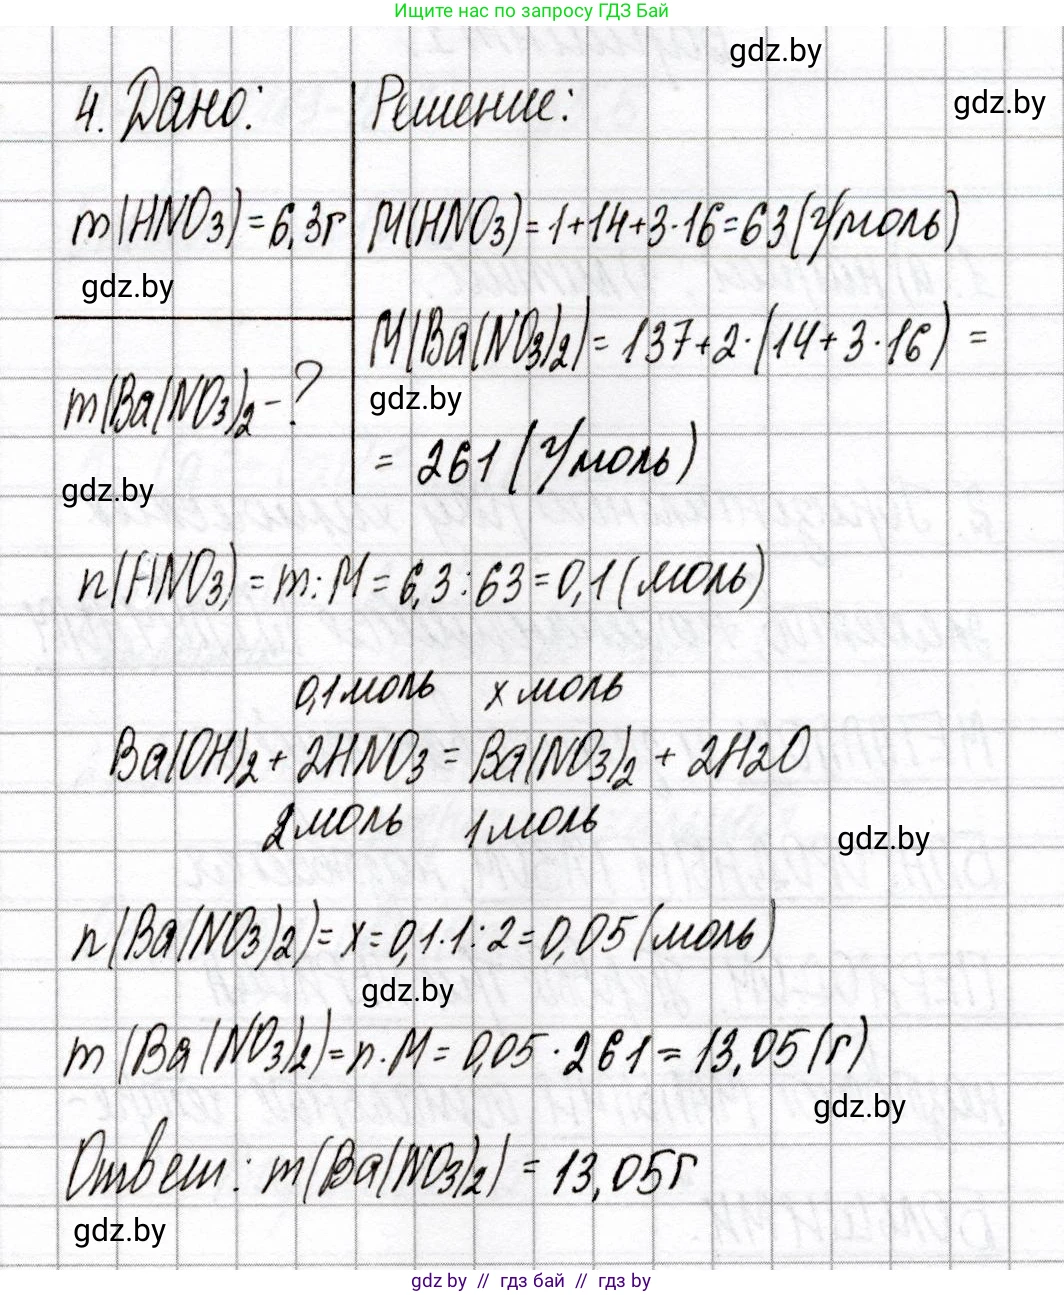 Ищите нас по запросу ГДЗ Бай
gdz.by
4. Дано:
Решение:
gdz.by
m(HNO3) = 6,3г
M(HNO3) = 1+14+3·16=63 (г/моль)
gdz.by
M(Ba(NO3)2) = 137+2·(14+3·16) =
m(Ba(NO3)2 - ?
gdz.by
= 261 (г/моль)
gdz.by
n(HNO3) = m:M = 6,3:63=0,1 (моль)
0,1 моль x моль
Ba(OH)2 + 2HNO3 = Ba(NO3)2 + 2H2O
2 моль 1 моль
gdz.by
n(Ba(NO3)2) = x = 0,1·1:2=0,05 (моль)
gdz.by
m(Ba(NO3)2) = n·M = 0,05·261 = 13,05 (г)
gdz.by
Ответ: m(Ba(NO3)2) = 13,05г
gdz.by
gdz by // гдз бай // гдз by